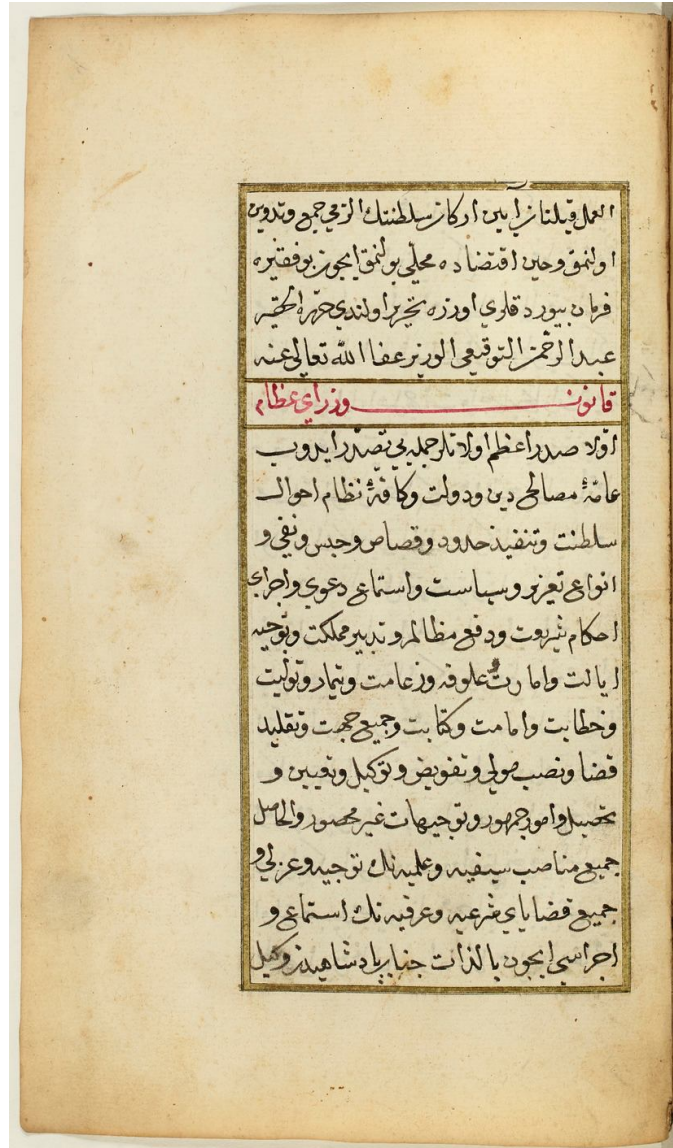 العمل قيلنان آيين اركان سلطنتك الزمي جمع وتدوين
اولنمق وحين اقتضاده محلي بولنمق ايچون بو فقيره
فرمان بيوردقلري اوزره تحرير اولندي حرره الحقير
عبد الرحمن التوقيعي الوزير عفا الله تعالى عنه
قانون وزراي عظام
اولا صدر اعظم اولانلر جمله يي تصدر ايدوب
عامۀ مصالح دين ودولت وكافۀ نظام احوال
سلطنت وتنفيذ حدود وقصاص وحبس ونفي و
انواع تعزير وسياست واستماع دعوي واجراي
احكام شريعت ودفع مظالم وتدبير مملكت وتوجيه
ايالت وامارت علوفه وزعامت وتيمار وتوليت
وخطابت وامامت وكتابت وجميع جهت وتقليد
قضا ونصب مولي وتفويض وتوكيل وتعيين و
تحصيل وامور جمهور وتوجيهات غير محصور والحاصل
جميع مناصب سيفيه وعلميه نك توجيه وعزلي و
جميع قضاياي شرعيه وعرفيه نك استماع و
اجراسي ايچون بالذات جناب پادشاهيدن وكيل